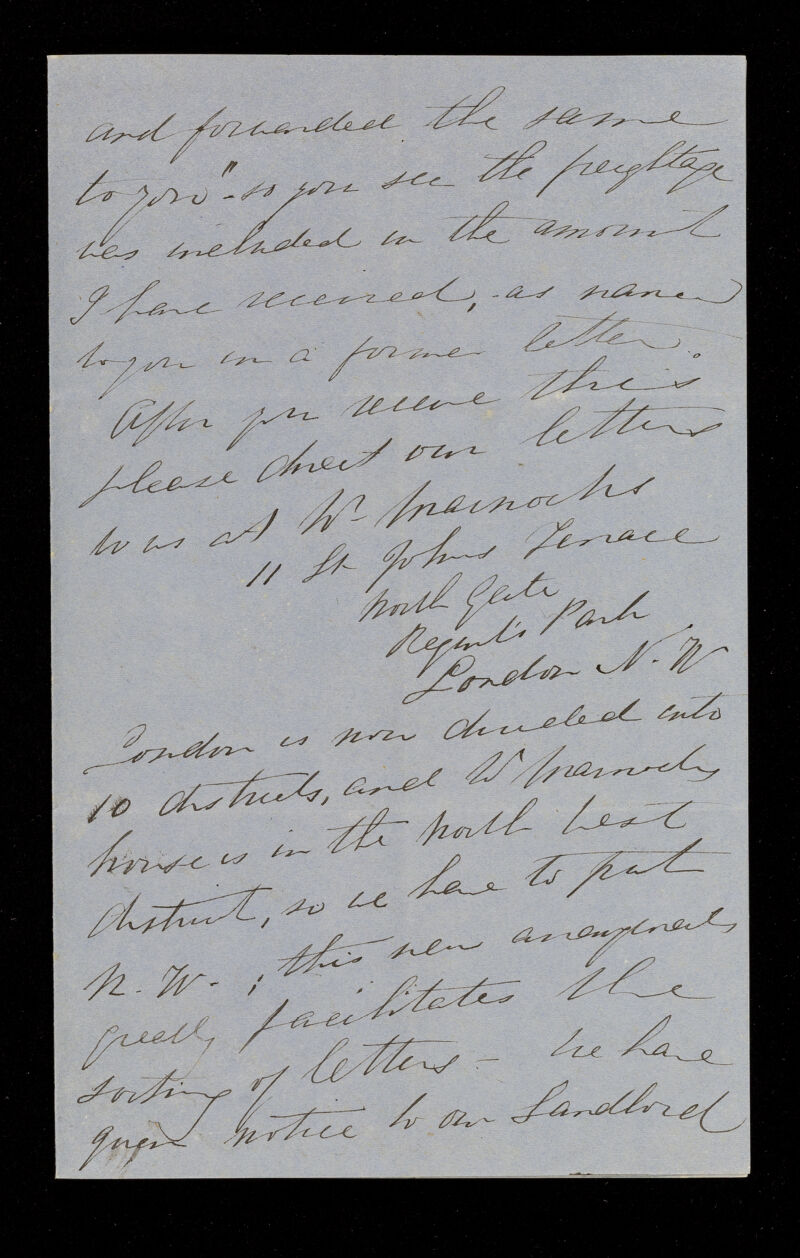 and forwarded the same
to you" - so you see the freightage
was included in the amount
I have received, - as named
to you in a former letter.
After you receive this
please direct our letters
to us at Wm
11 St Johns Terrace
North Gate
Regent's Park
London N. W
London is now divided into
10 districts, and Wm
house is in the North West
district, so we have to put
N. W. ; this new arrangements
greatly facilitates the
sorting of letters - We have
given notice to our Landlord